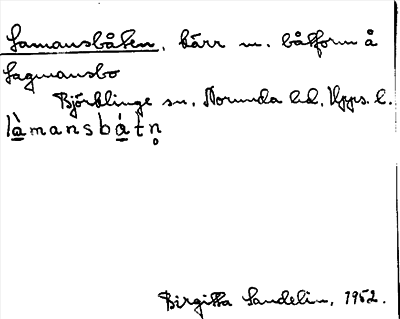 Lamansbåten, kärr m. båtform å
Lagmansbo
Björklinge sn, Norunda hd, Upps. l.
làmansbátn̥
Birgitta Sandelin, 1952.